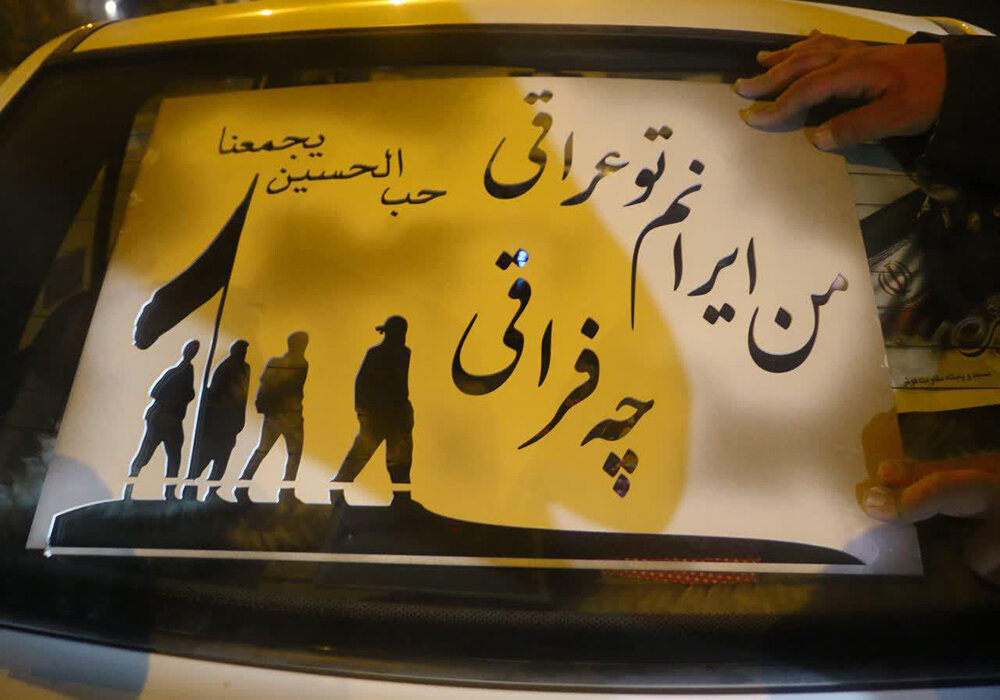 من ایرانم تو عراقی
چه فراقی
حب
الحسین
یجمعنا